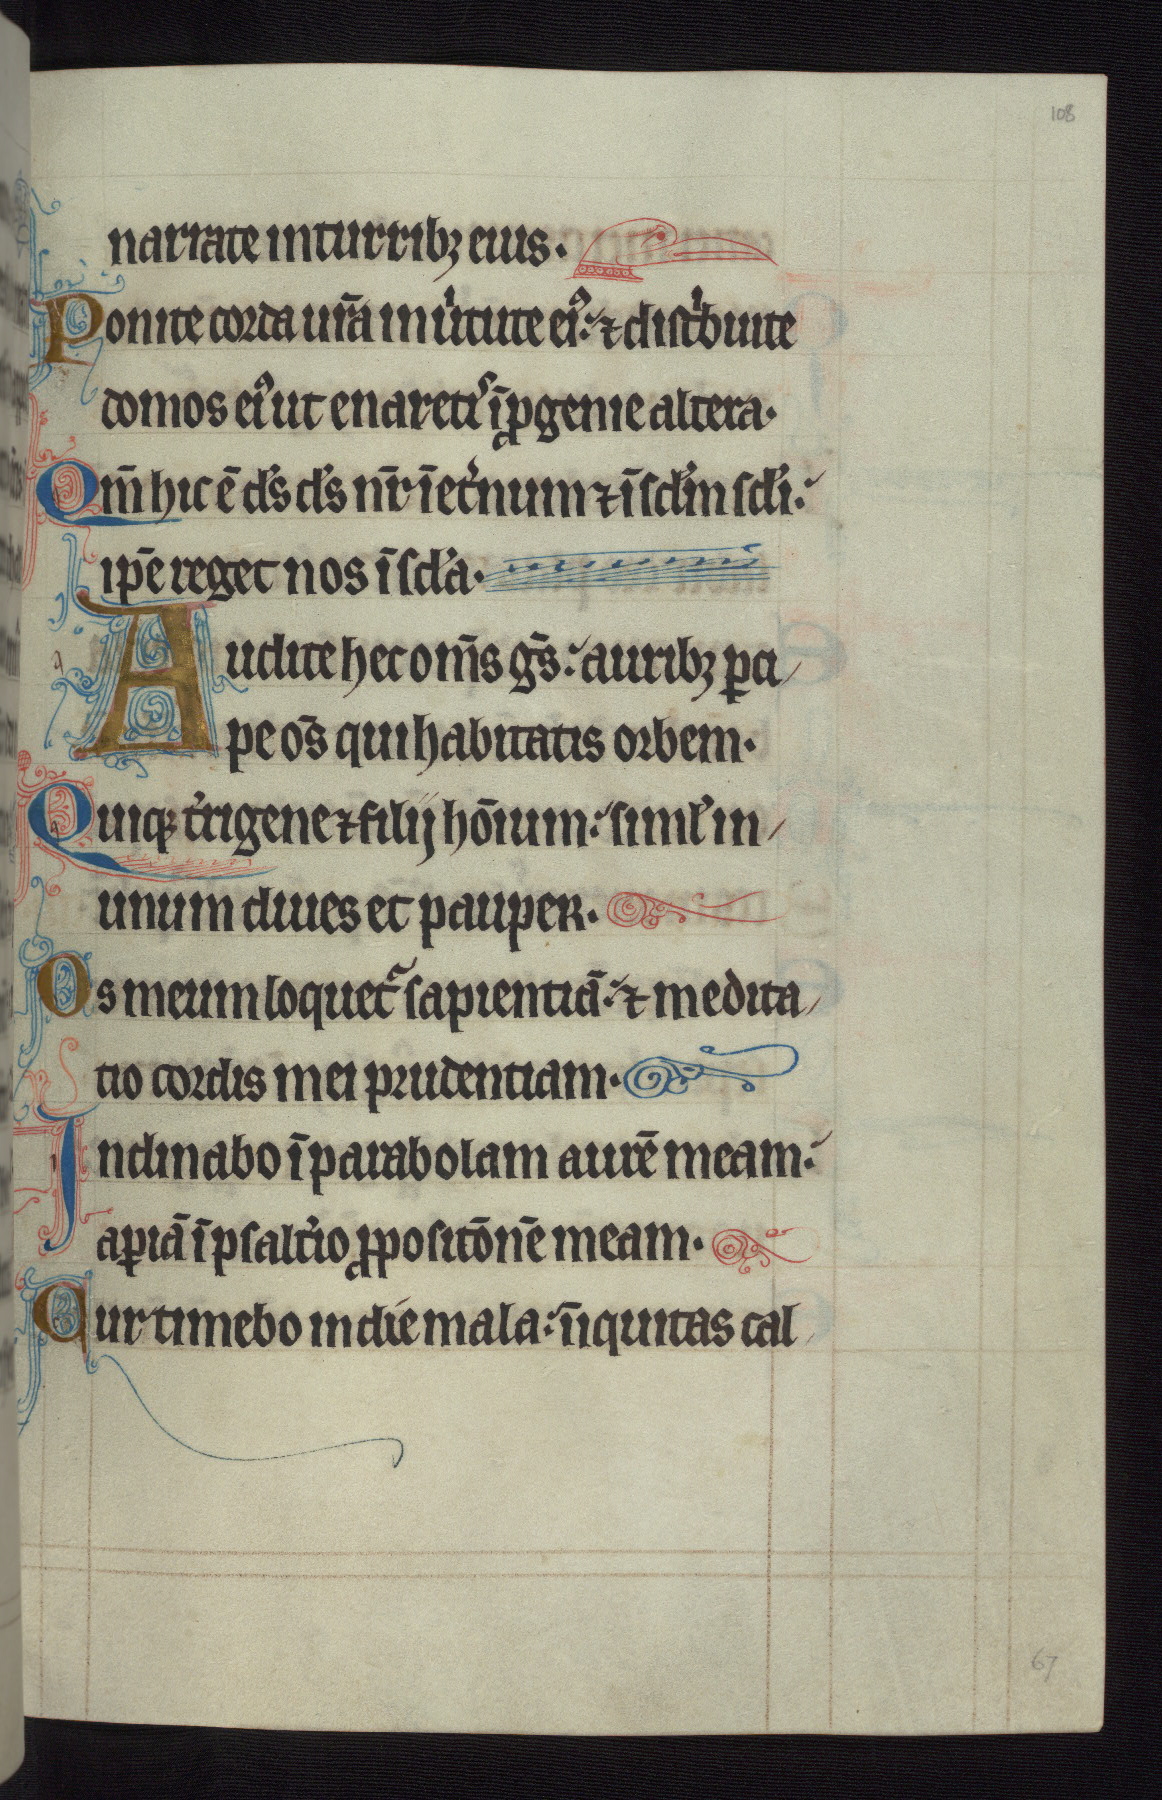 108
narrate in turribꝫ eius.
Ponite corda ur̄a in u'tute ei⁹: ⁊ dist'buite
domos ei⁹ ut enaret᷑ ī ꝓgenie altera.
Qm̄ hic ē d's d's nr̄ ī et'num ⁊ ī sc'lm sc'li:
ip̄e reget nos ī sc'la.
Audite hec om̄s gn̄s: auribꝫ ꝑci
pe oēs qui habitatis orbem.
Quiqꝫ t'rigene ⁊ filij hōium: siml' in
unum diues et pauper.
Os meum loquet᷑ sapientiā: ⁊ medita
tio cordis mei prudentiam.
Inclinabo ī parabolam aurē meam:
aꝑiā ī psalt'io ꝓpositōnē meam.
Cur timebo in die mala: īiquitas cal
67